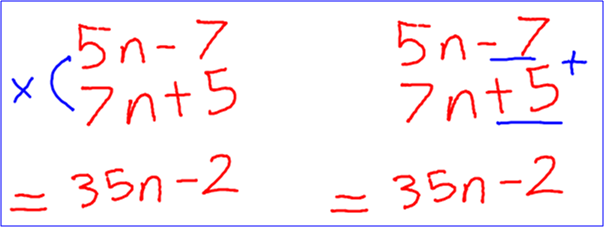 5n - 7
× ( 7n + 5
= 35n - 2
5n - 7
7n + 5 +
= 35n - 2